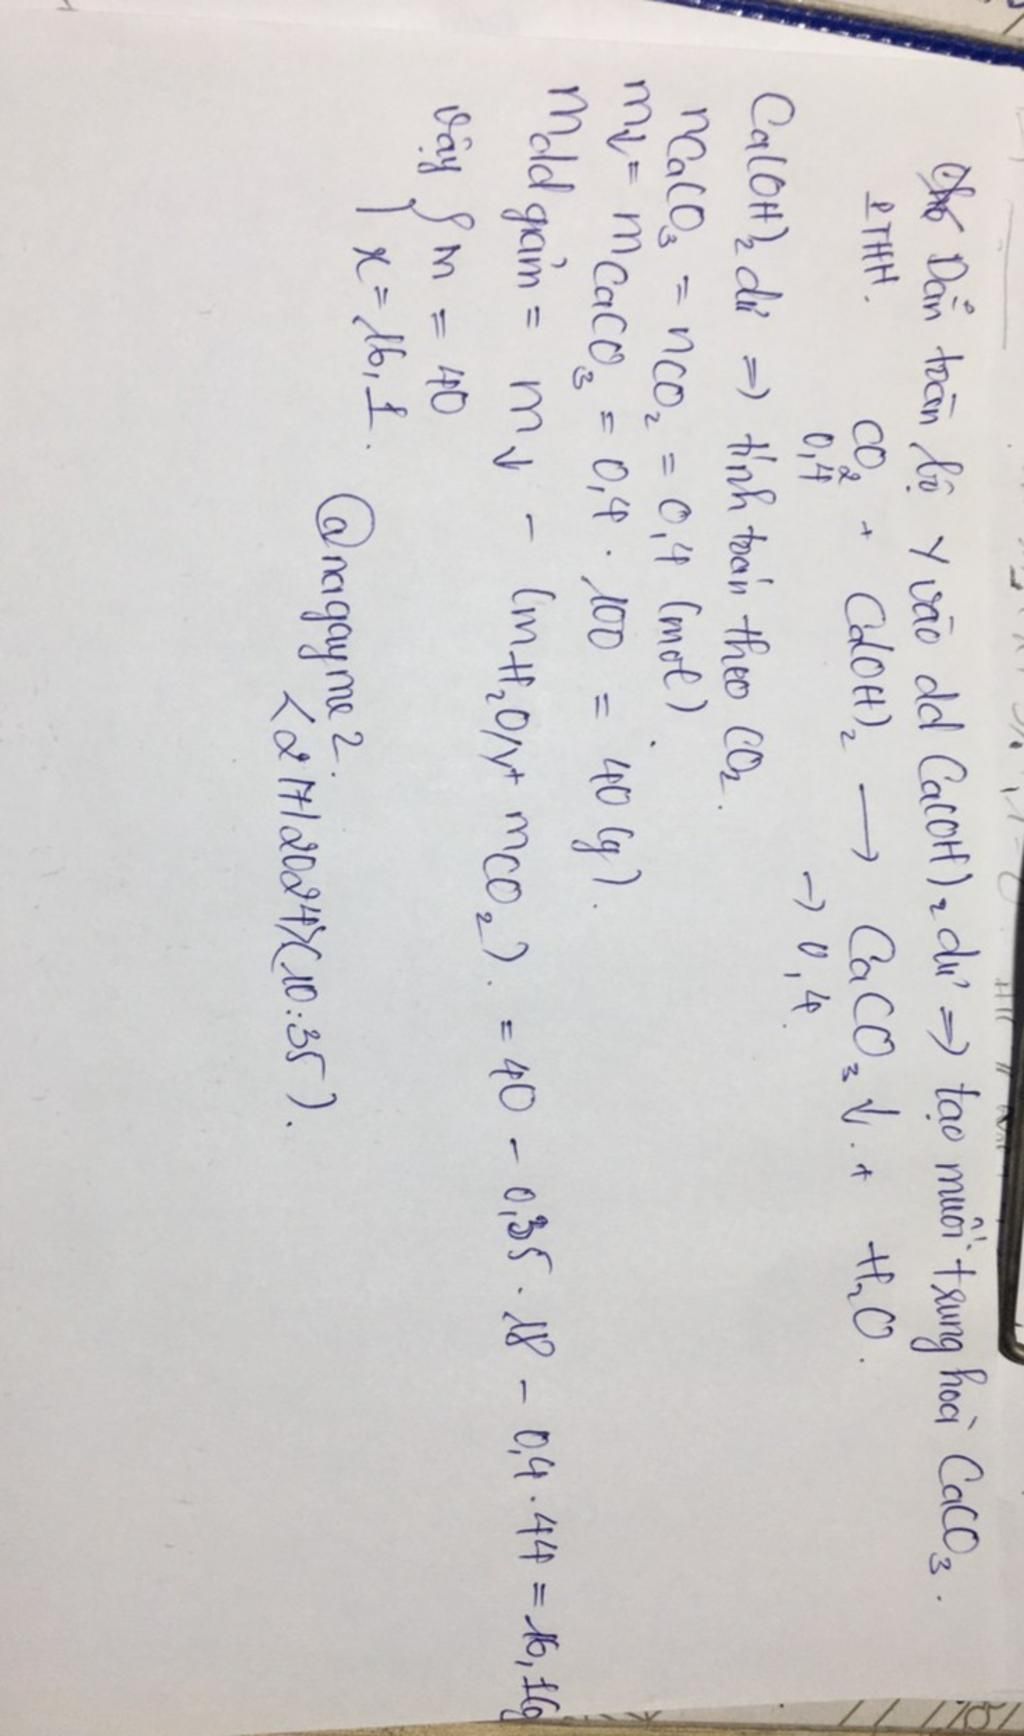 Dẫn toàn bộ Y vào dd Ca(OH)₂ dư => tạo muối trung hoà CaCO₃.
PTHH. CO₂ + Ca(OH)₂ → CaCO₃↓ + H₂O.
0,4 → 0,4.
Ca(OH)₂ dư => tính toán theo CO₂.
nCaCO₃ = nCO₂ = 0,4 (mol)
m↓ = mCaCO₃ = 0,4 . 100 = 40 (g).
mdd giảm = m↓ - (mH₂O/Y + mCO₂). = 40 - 0,35 . 18 - 0,4 . 44 = 16,1g
Vậy { m = 40
x = 16,1.
@nagayme2.
<21712024>(10:35).